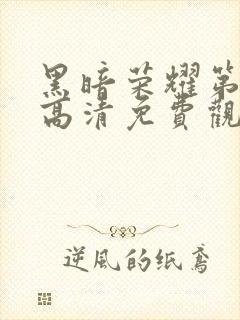 黑暗荣耀第
高清免費觀
逆風的纸鳶